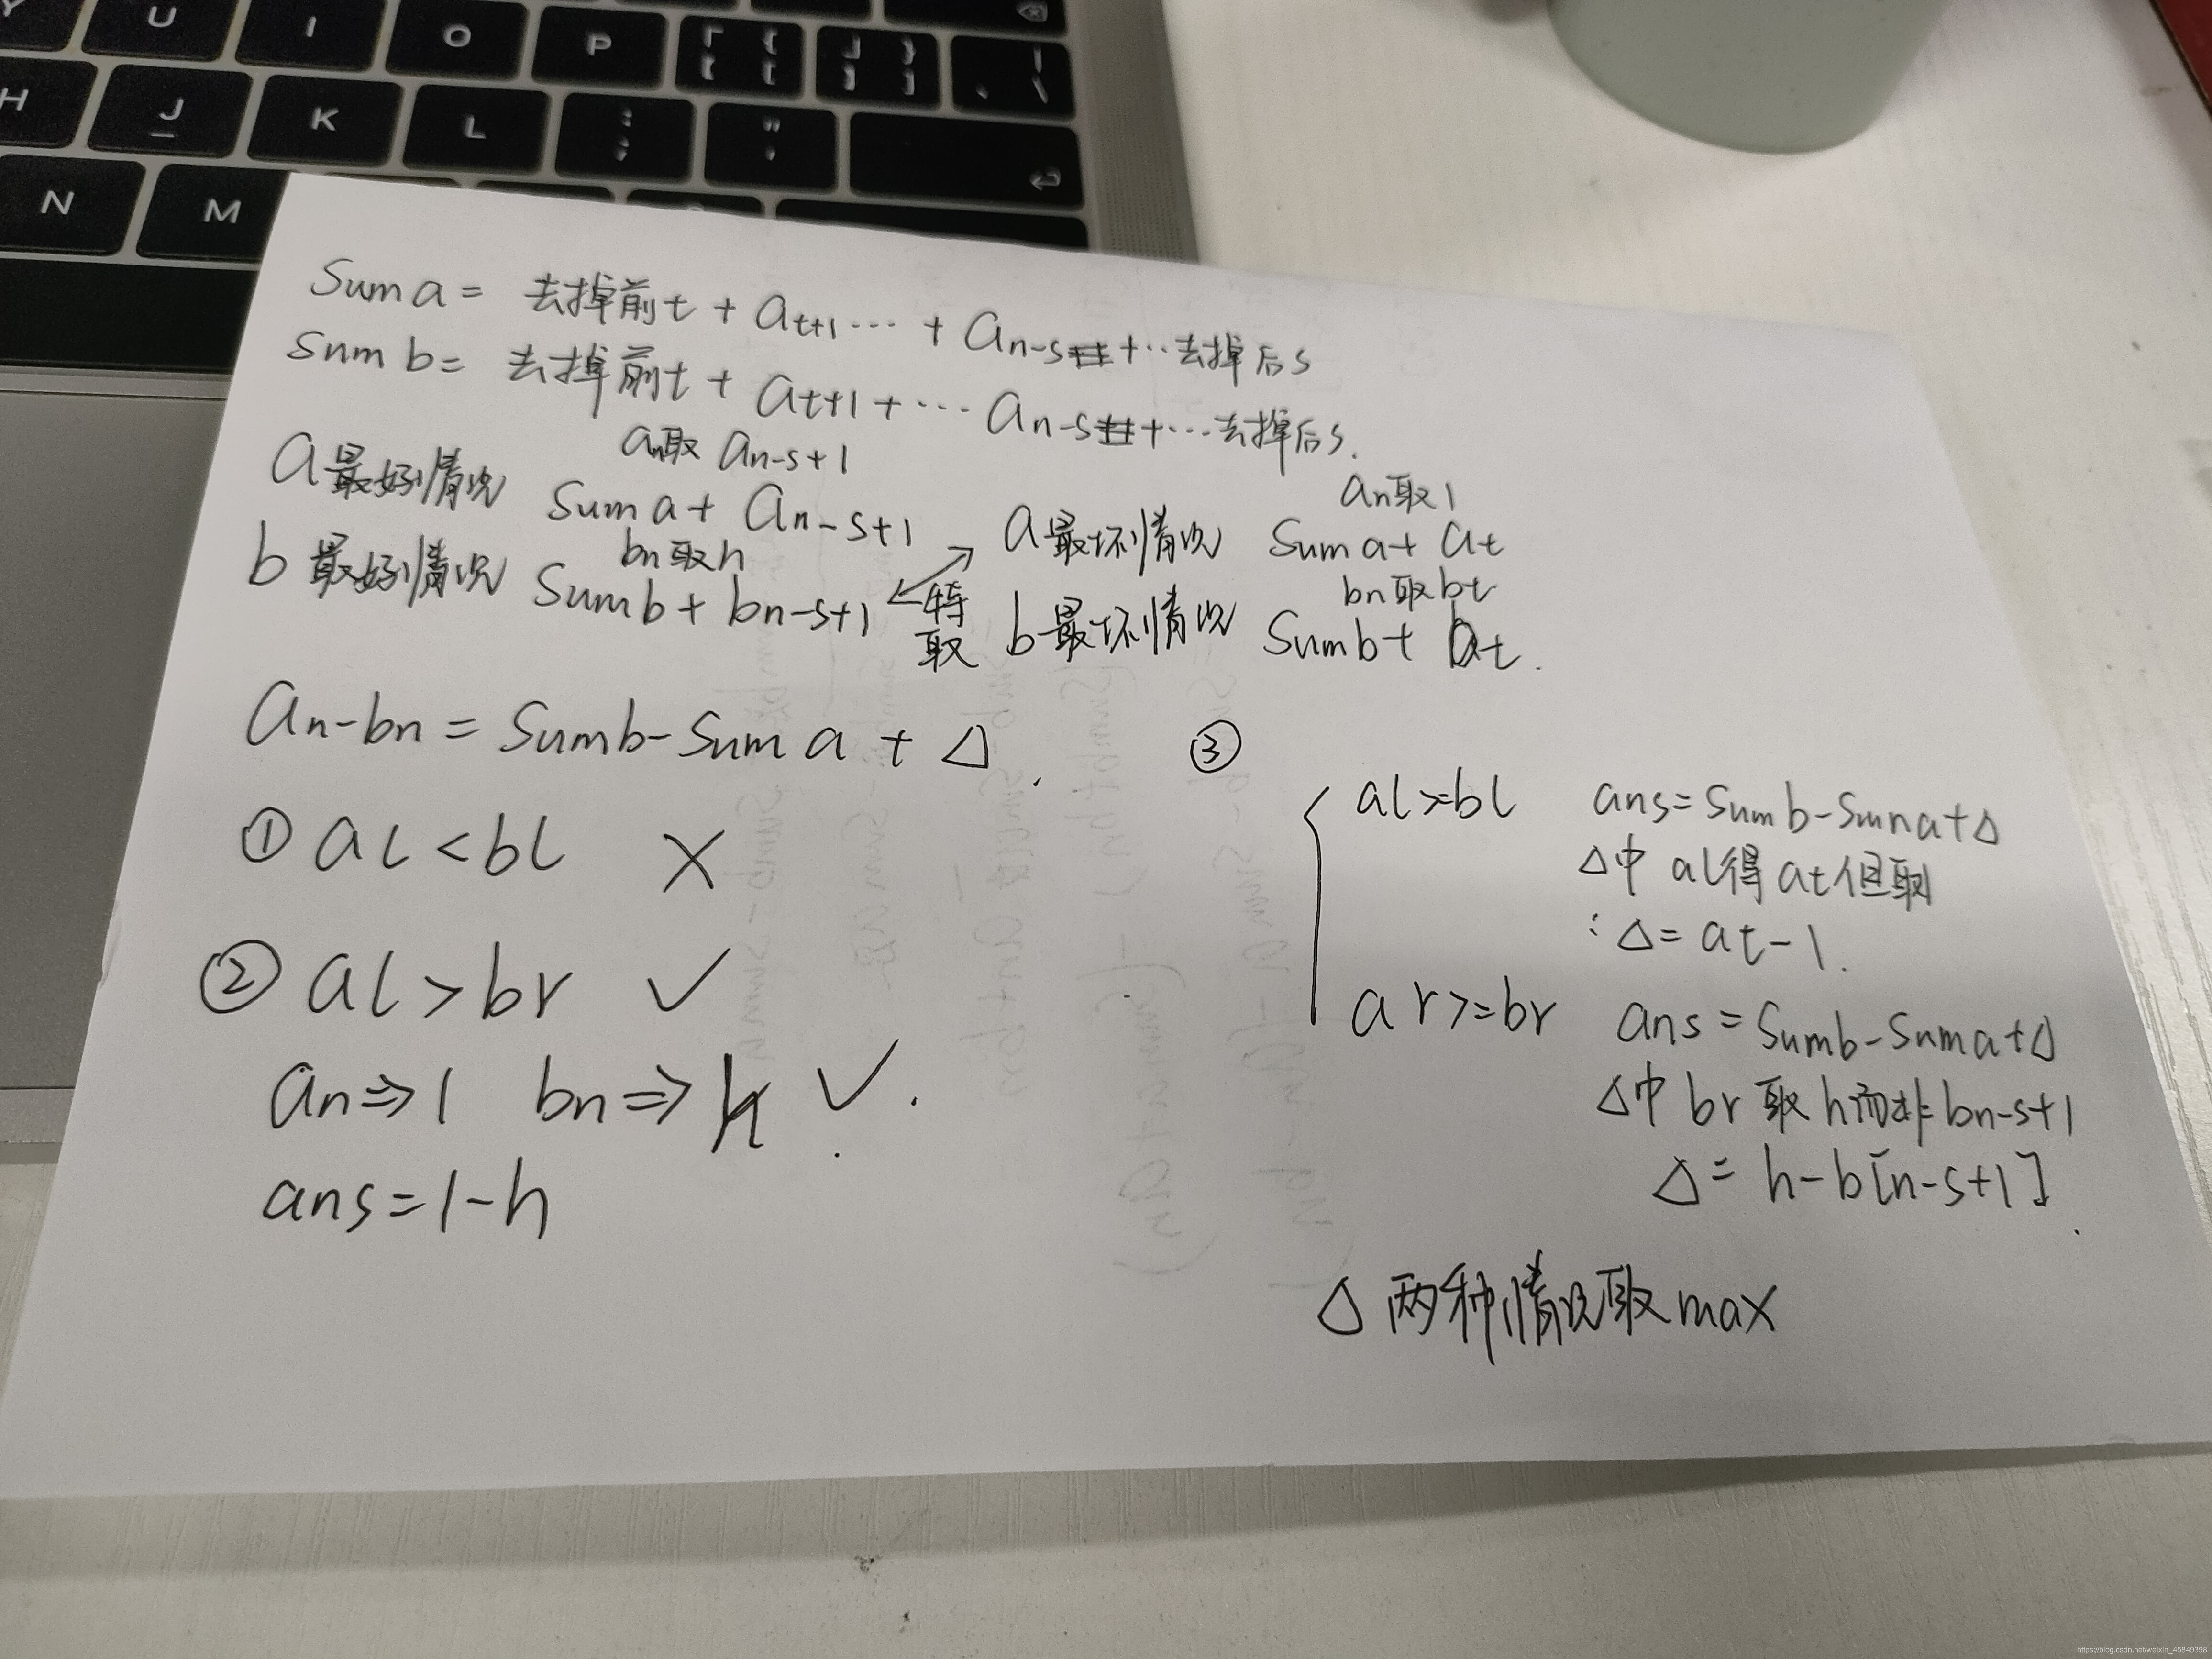 U I O P { [ } ] | \
H J K L : ; " '
N M
Sum a = 去掉前t + at+1 ... + an-s + .. 去掉后s
Sum b = 去掉前t + at+1 + ... an-s + ... 去掉后s.
an取 an-s+1
a最好情况 Sum a + an-s+1
bn取h
b最好情况 Sumb + bn-s+1
特取
an取1
a最坏情况 Sum a + at
bn取bt
b最坏情况 Sumb + bt.
an-bn = Sumb-Sum a + Δ.
① al < bl ×
② al > br ✓
an⇒1 bn⇒h ✓.
ans=1-h
③
al>=bl ans=Sumb-Suma+Δ
Δ中 al得at但取1
∴Δ= at-1.
ar>=br ans=Sumb-Suma+Δ
Δ中 br取h而非bn-s+1
Δ= h-b[n-s+1].
Δ 两种情况取max
https://blog.csdn.net/weixin_45849398